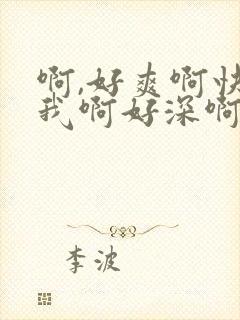 啊,好爽啊快
我啊好深啊
李波